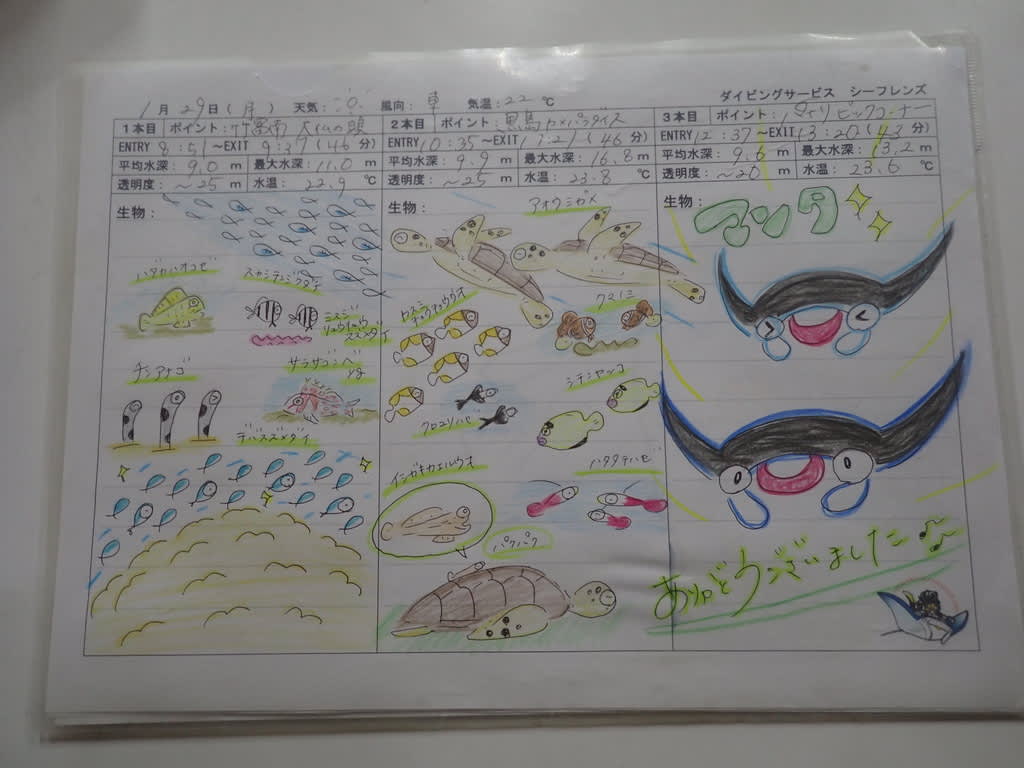 ダイビングサービス シーフレンズ
1月29日(月) 天気: 風向: 東 気温:22℃
1本目 ポイント:竹富南 大仏の頭
ENTRY 8:51~EXIT 9:37(46分)
平均水深: 9.0 m 最大水深:11.0 m
透明度:~25 m 水温: 22.9 ℃
生物:
スカシテンジクダイ
ハダカハオコゼ
ミスジリュウキュウスズメダイ
チンアナゴ
サラサゴンベ
デバスズメダイ
2本目 ポイント:黒島カメパラダイス
ENTRY 10:35~EXIT 11:21(46分)
平均水深: 9.9 m 最大水深:16.8 m
透明度:~25 m 水温: 23.8 ℃
生物:
アオウミガメ
クマノミ
シテンヤッコ
クロユリハゼ
イシガキカエルウオ
ハタタテハゼ
パクパク
3本目 ポイント:マイリビックコーナー
ENTRY 12:37~EXIT 13:20(43分)
平均水深: 9.6 m 最大水深:13.2 m
透明度:~20 m 水温: 23.6 ℃
生物:
マンタ
ありがとうございました♪